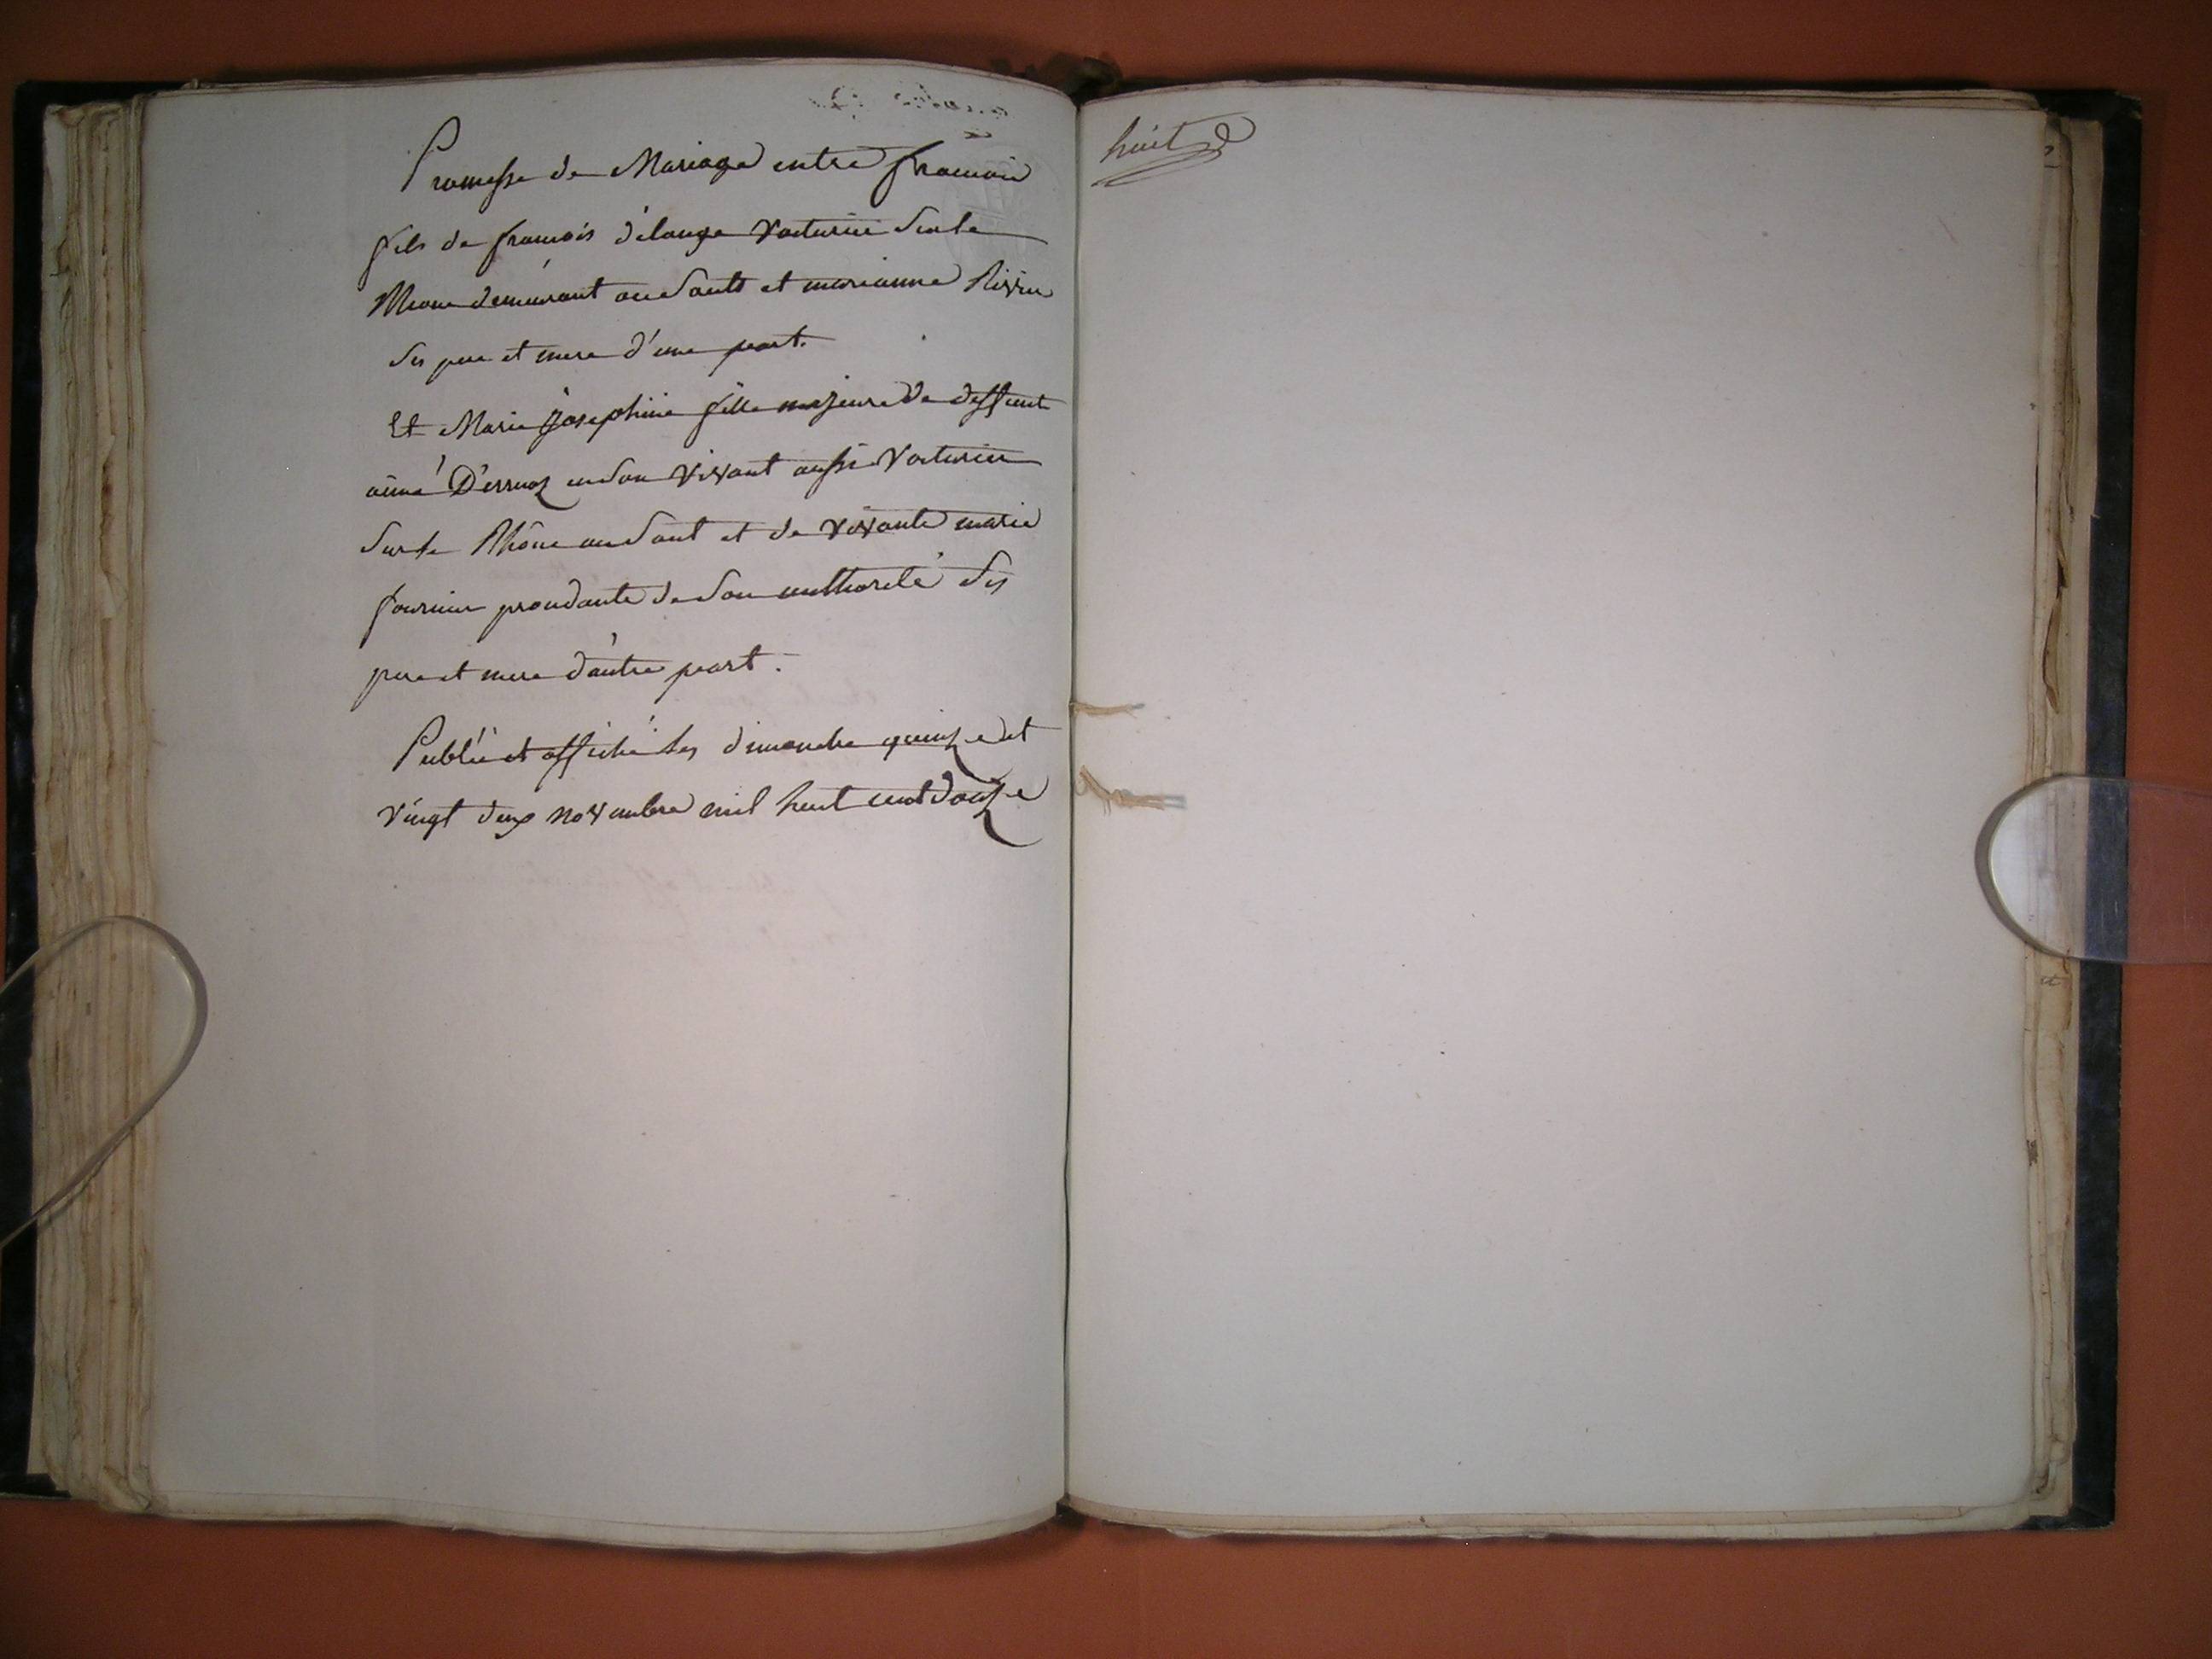 Promesse de Mariage entre françois
fils de françois délange Voiturier Sur le
Rhone demeurant au Sault et marianne
Ses pere et mere d'une part.
Et Marie Josephine fille majeure de deffunt
aimé Dervuoz en Son Vivant aussi Voiturier
Sur le Rhône au Sault et de vivante marie
fournier procédante de Son authorité Ses
pere et mere d'autre part.
Publié et affiché les dimanche quinze et
Vingt deux novembre mil huit cent douze
huit